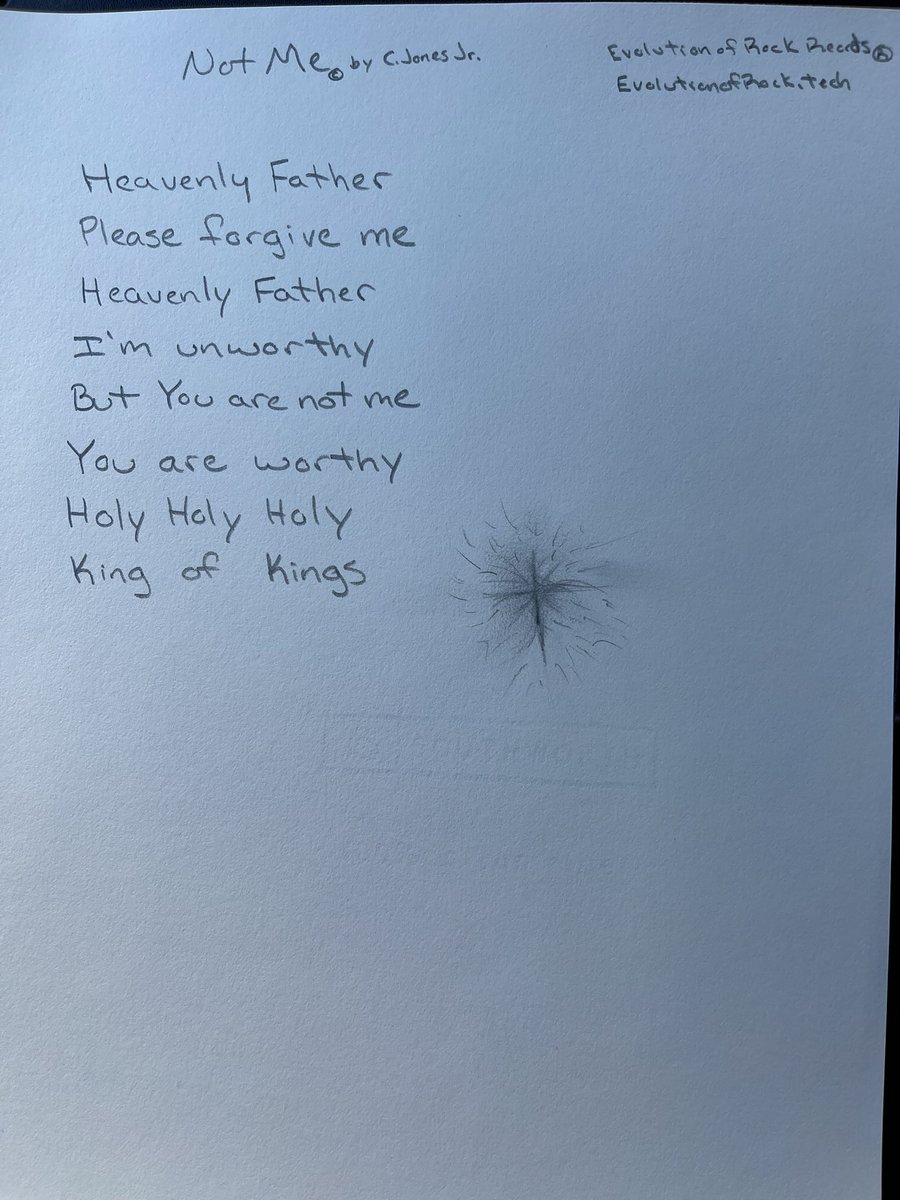 Not Me © by C. Jones Jr.
Evolution of Rock Records ®
EvolutionofRock.tech
Heavenly Father
Please forgive me
Heavenly Father
I'm unworthy
But You are not me
You are worthy
Holy Holy Holy
King of Kings